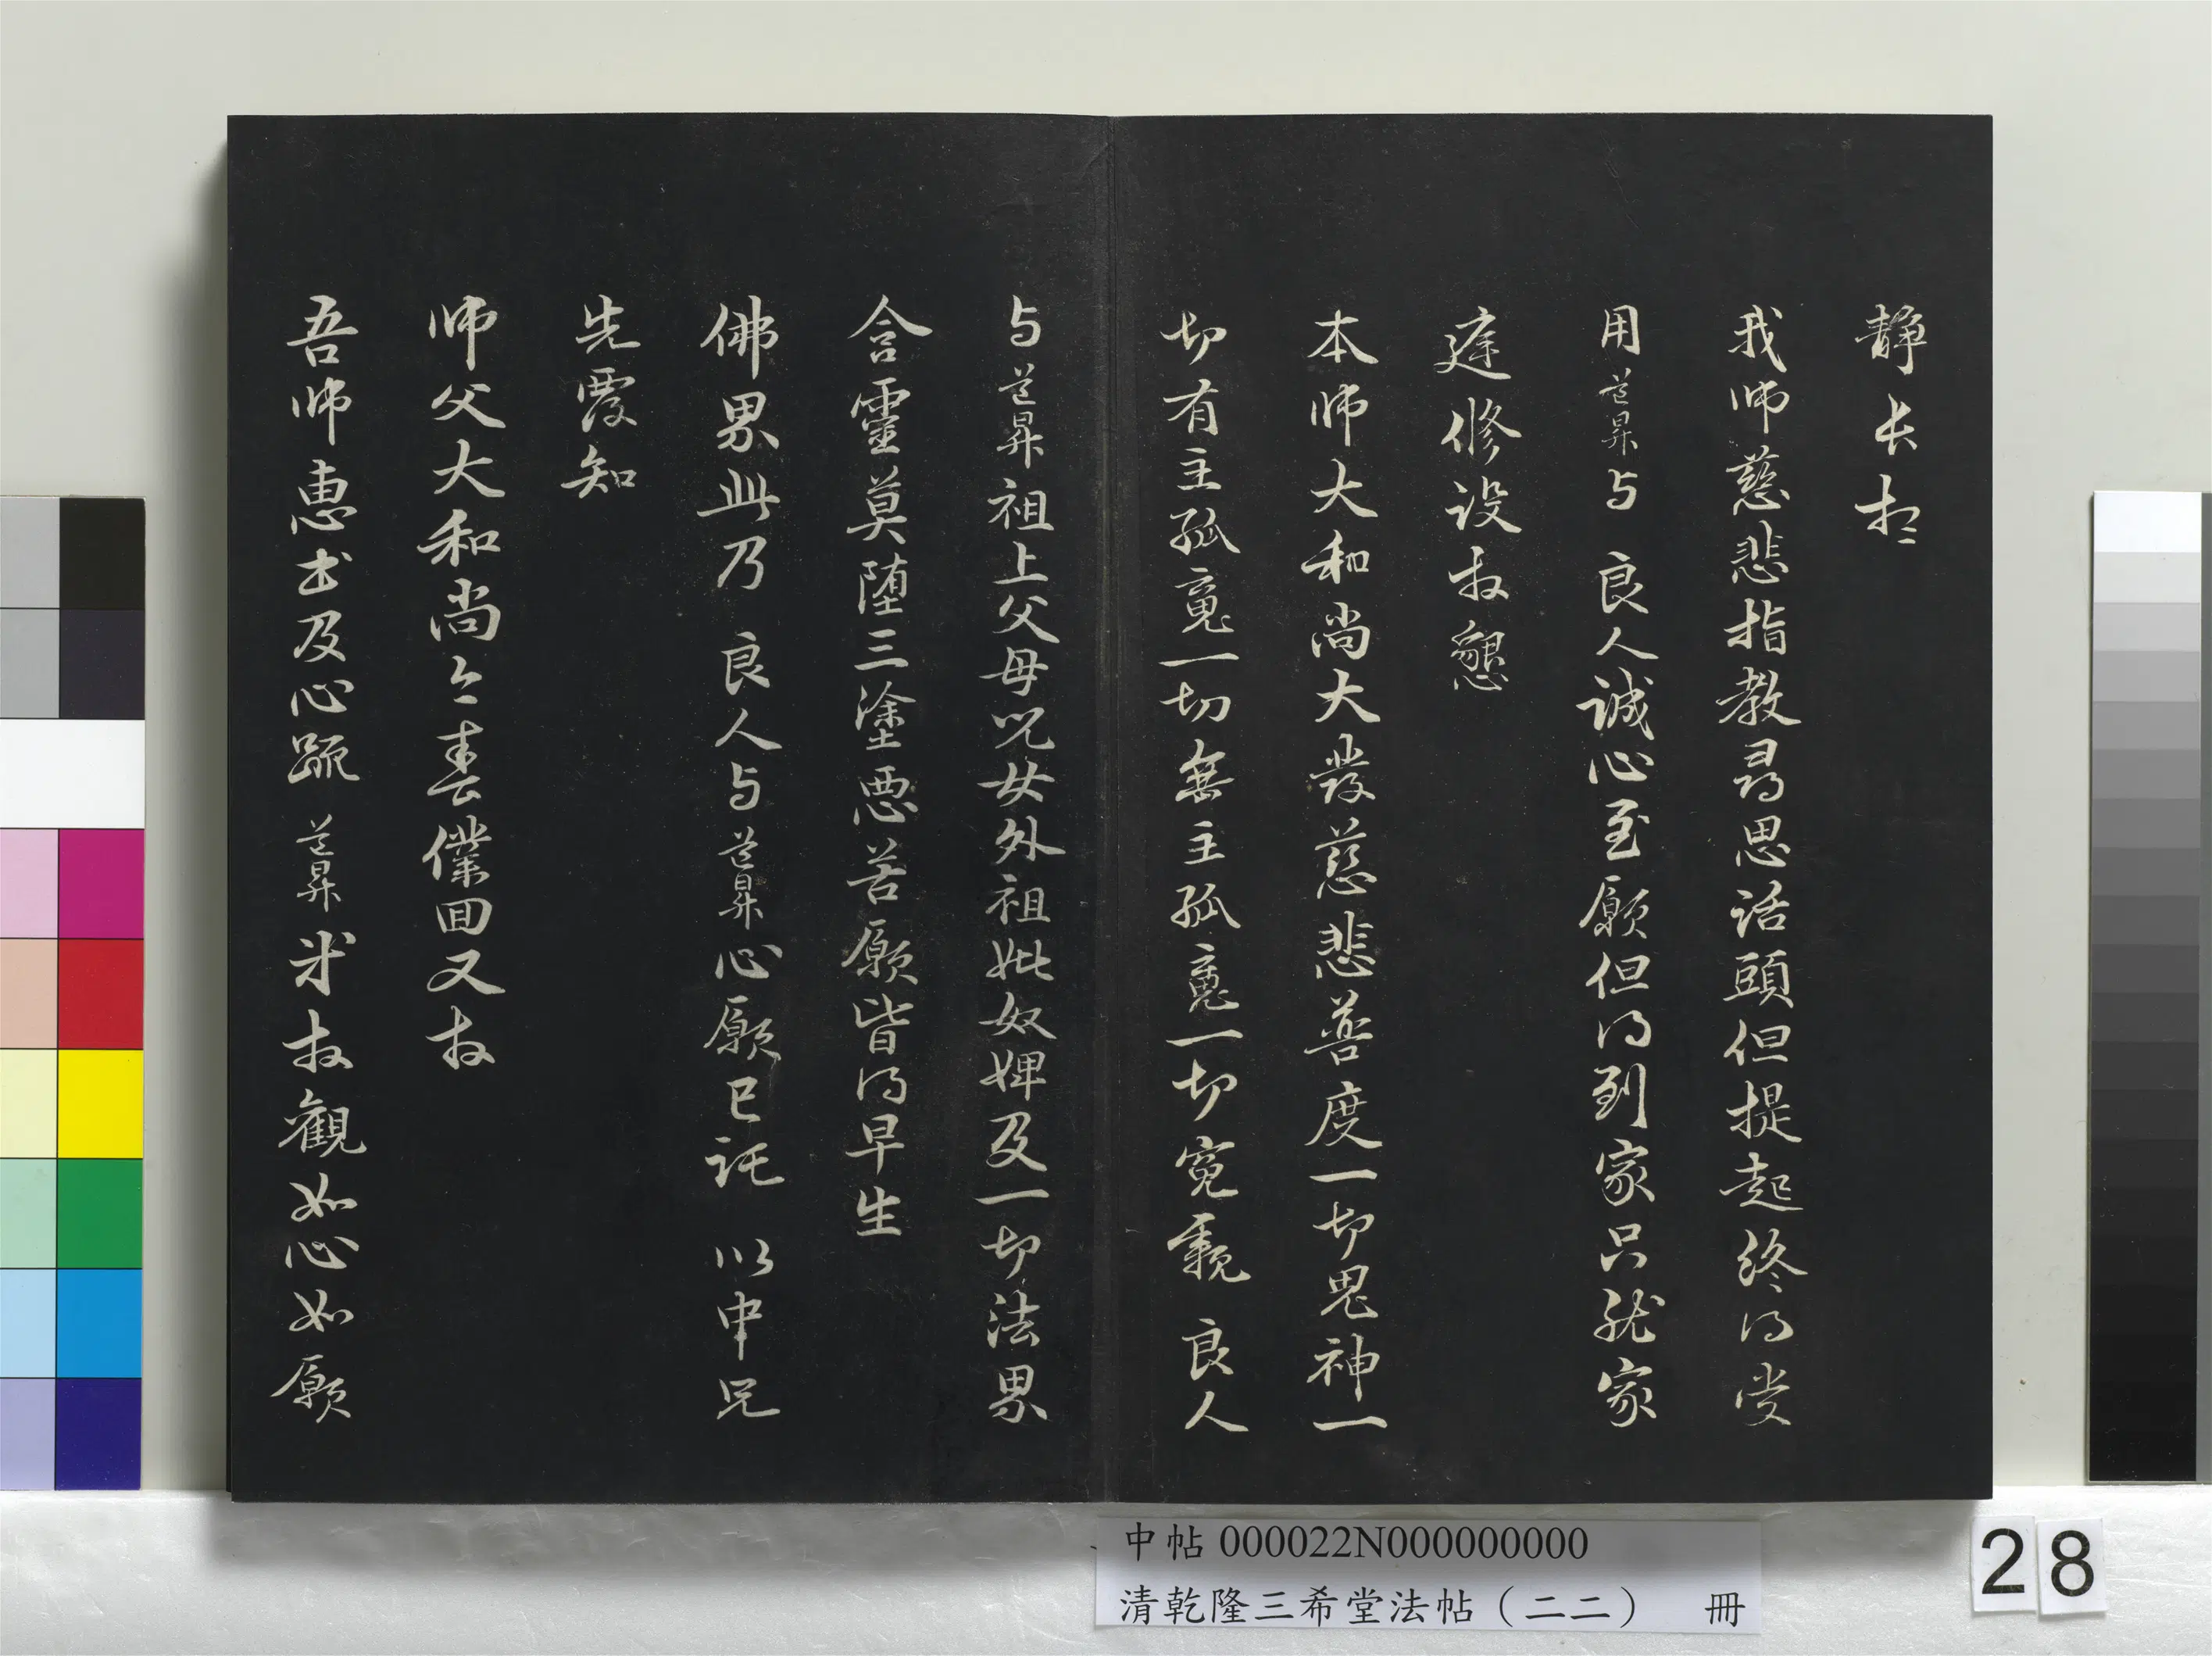 静长老
我师慈悲指教尋思话頭但提起终得受
用道昇与良人誠心至願但得到家只就家
庭修设拜懇
本师大和尚大發慈悲普度一切鬼神一
切有主孤魂一切無主孤魂一切冤親良人
与道昇祖上父母兄女外祖妣奴婢及一切法界
含靈莫堕三塗惡苦願皆得早生
佛界此乃良人与道昇心願已託以中兄
先覆知
师父大和尚今春僕回又拜
吾师惠书及心疏道昇米拜觀如心如願
中帖 000022N000000000
清乾隆三希堂法帖（二二） 冊
28